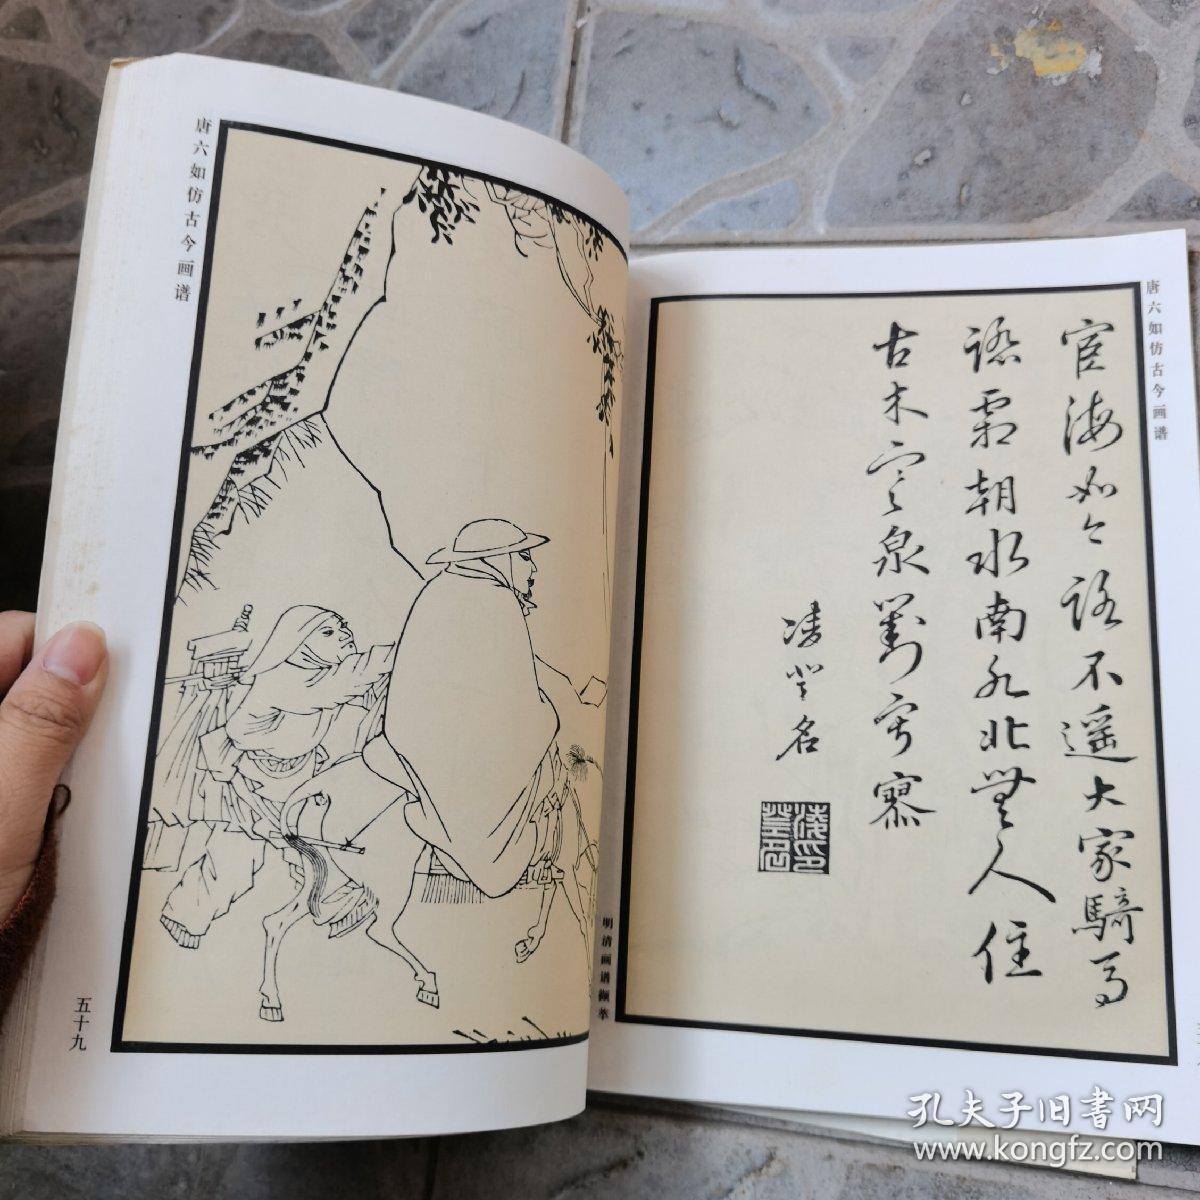 唐六如仿古今画谱
宦海如今路不遥大家騎馬
踏霜朝水南水北無人住
古木寒泉對寂寥
凌登名
明清画谱撷萃
唐六如仿古今画谱
五十九
孔夫子旧书网
www.kongfz.com